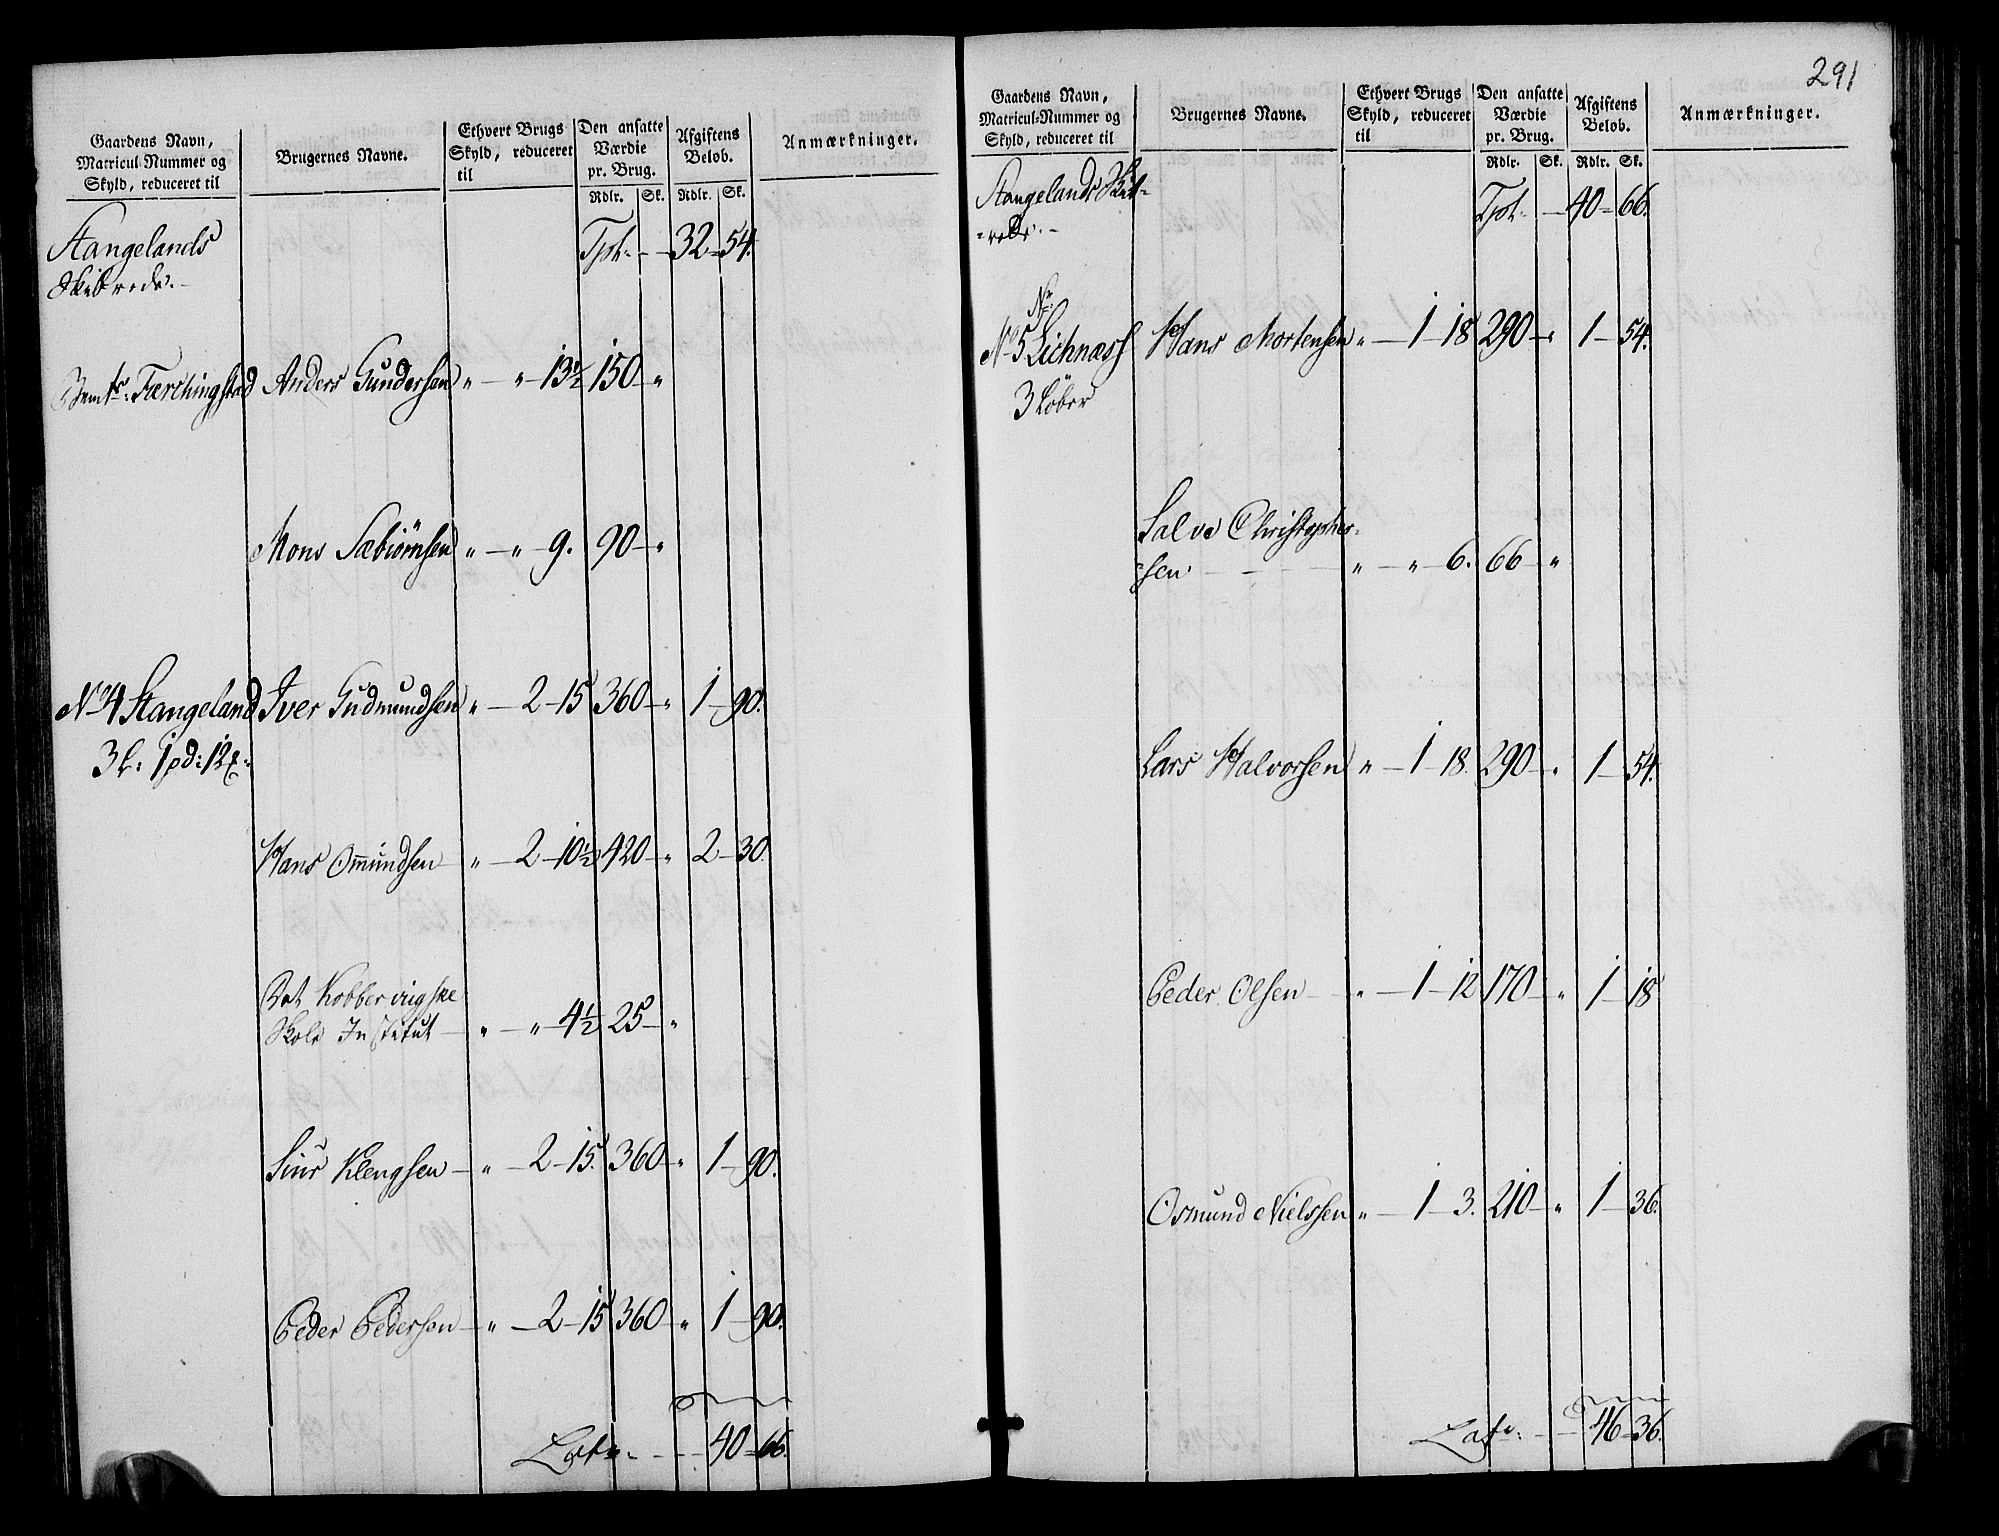 Gaardens Navn,
Matricul-Nummer og
Skyld, reduceret til
Brugernes Navne.
Ethvert Brugs
Skyld, reduceret
til
Den ansatte
Værdie
pr. Brug.
Rdlr. Sk.
Afgiftens
Beløb.
Rdlr. Sk.
Anmærkninger.
Stangelands
Skibrede. Tpt. 32 = 54.
Færchingstad Anders Gundersen " — " — 13½ 150 — "
Mons Sæbiörnsen " — " — 9. 90 — "
No 4 Stangeland Iver Gudmundsen " — 2 — 15 360 — " 1 — 90.
3 L: 1 pd: 12
Hans Omundsen — " — 2 — 10½ 420 — " 2 — 30.
Det Kobbervigske
Skole Institut — " — " — 4½ 25 — "
Siur Klengsen — " — 2 — 15. 360 — " 1 — 90.
Peder Pedersen — " — 2 — 15 360 — " 1 — 90.
Lat. 40 = 66.
291
Gaardens Navn,
Matricul-Nummer og
Skyld, reduceret til
Brugernes Navne.
Ethvert Brugs
Skyld, reduceret
til
Den ansatte
Værdie
pr. Brug.
Rdlr. Sk.
Afgiftens
Beløb.
Rdlr. Sk.
Anmærkninger.
Stangelands Skib-
-rede. Tpt. 40 = 66.
No 5 Lichness Hans Mortensen " — 1 — 18 290 — " 1 — 54.
3 Löber
Salve Christopher-
sen " — " — 6. 66 — "
Lars Halvorsen " — 1 — 18. 290 — " 1 — 54.
Peder Olsen " — 1 — 12 170 — " 1 — 18
Osmund Nielssen " — 1 — 3. 210 — " 1 — 36.
Lat. 46 — 36.